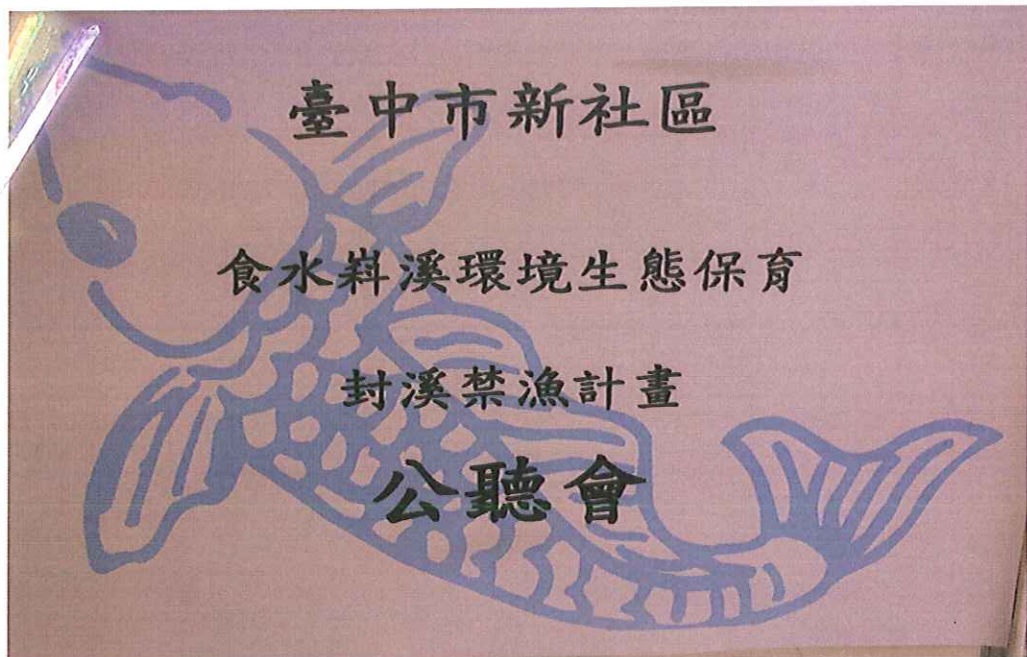 臺中市新社區
食水嵙溪環境生態保育
封溪禁漁計畫
公聽會